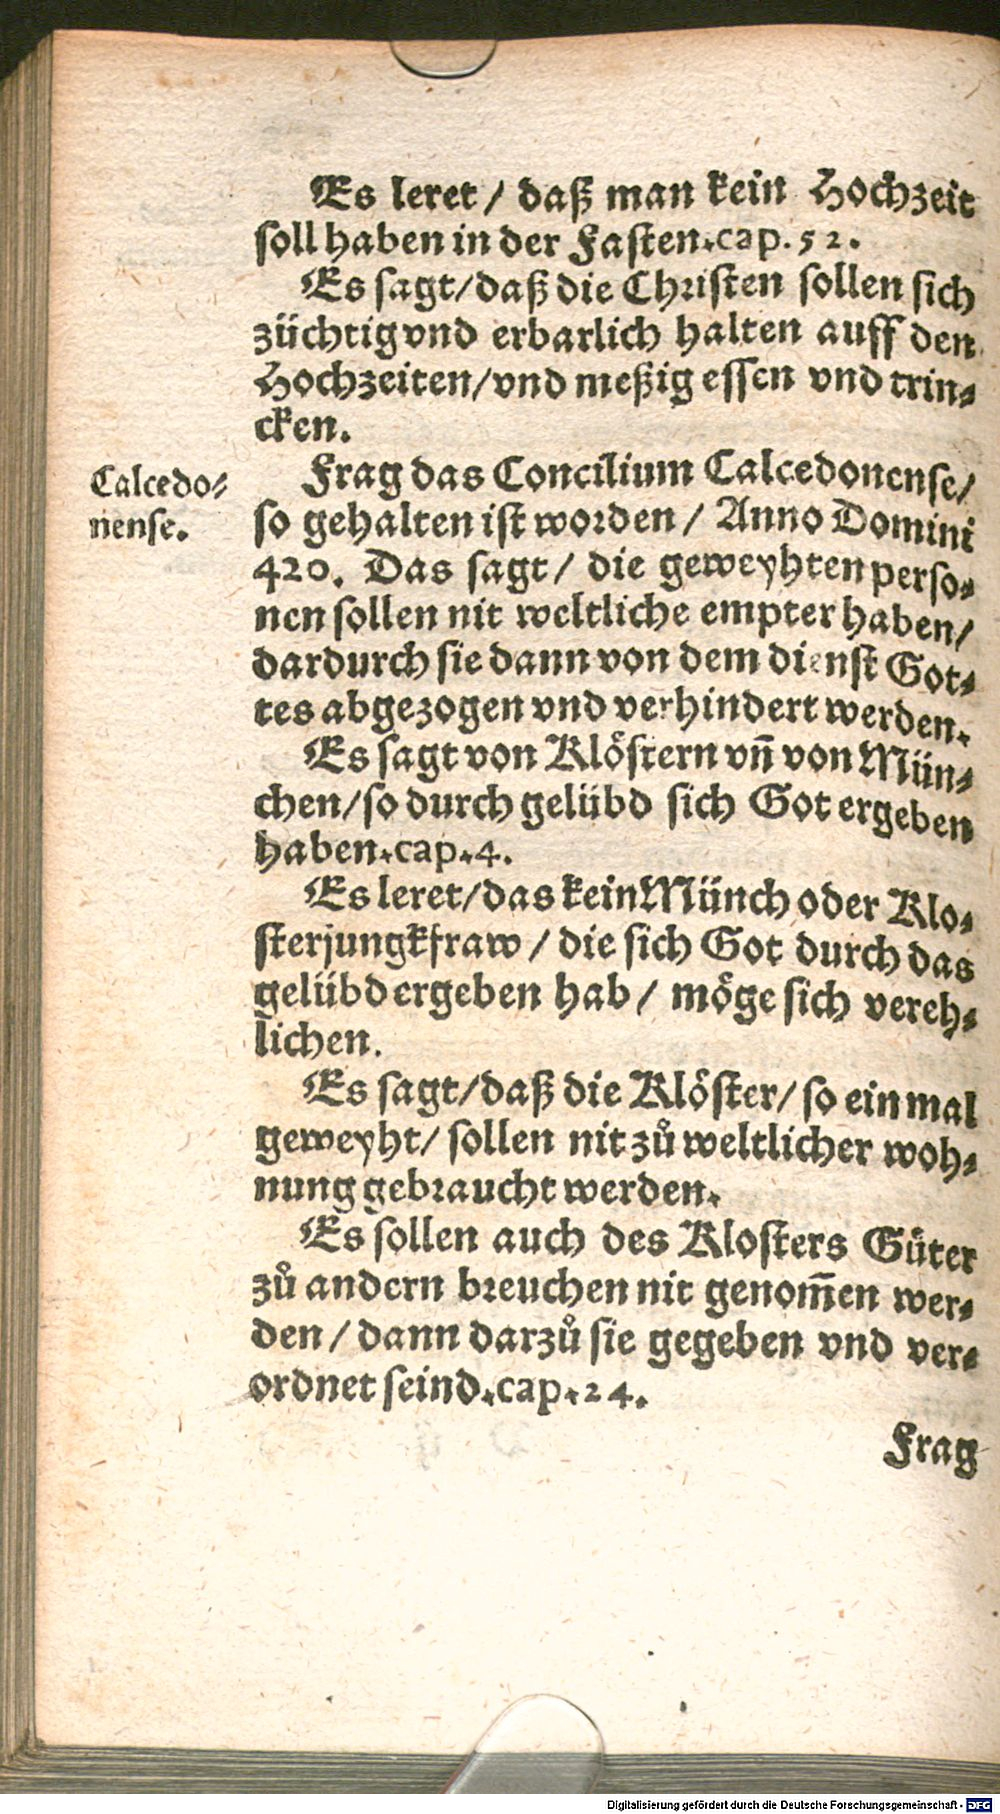 Es leret / daß man kein Hochzeit
soll haben in der Fasten. cap. 52.
Es sagt / daß die Christen sollen sich
züchtig vnd erbarlich halten auff den
Hochzeiten / vnd meßig essen vnd trin-
cken.
Calcedo-
nense.
Frag das Concilium Calcedonense /
so gehalten ist worden / Anno Domini
420. Das sagt / die geweyhten perso-
nen sollen nit weltliche empter haben /
dardurch sie dann von dem dienst Got-
tes abgezogen vnd verhindert werden.
Es sagt von Klöstern vñ von Mün-
chen / so durch gelübd sich Got ergeben
haben. cap. 4.
Es leret / das kein Münch oder Klo-
sterjungkfraw / die sich Got durch das
gelübd ergeben hab / möge sich vereh-
lichen.
Es sagt / daß die Klöster / so ein mal
geweyht / sollen nit zů weltlicher woh-
nung gebraucht werden.
Es sollen auch des Klosters Güter
zů andern breuchen nit genom̃en wer-
den / dann darzů sie gegeben vnd ver-
ordnet seind. cap. 24.
Frag
Digitalisierung gefördert durch die Deutsche Forschungsgemeinschaft - DFG